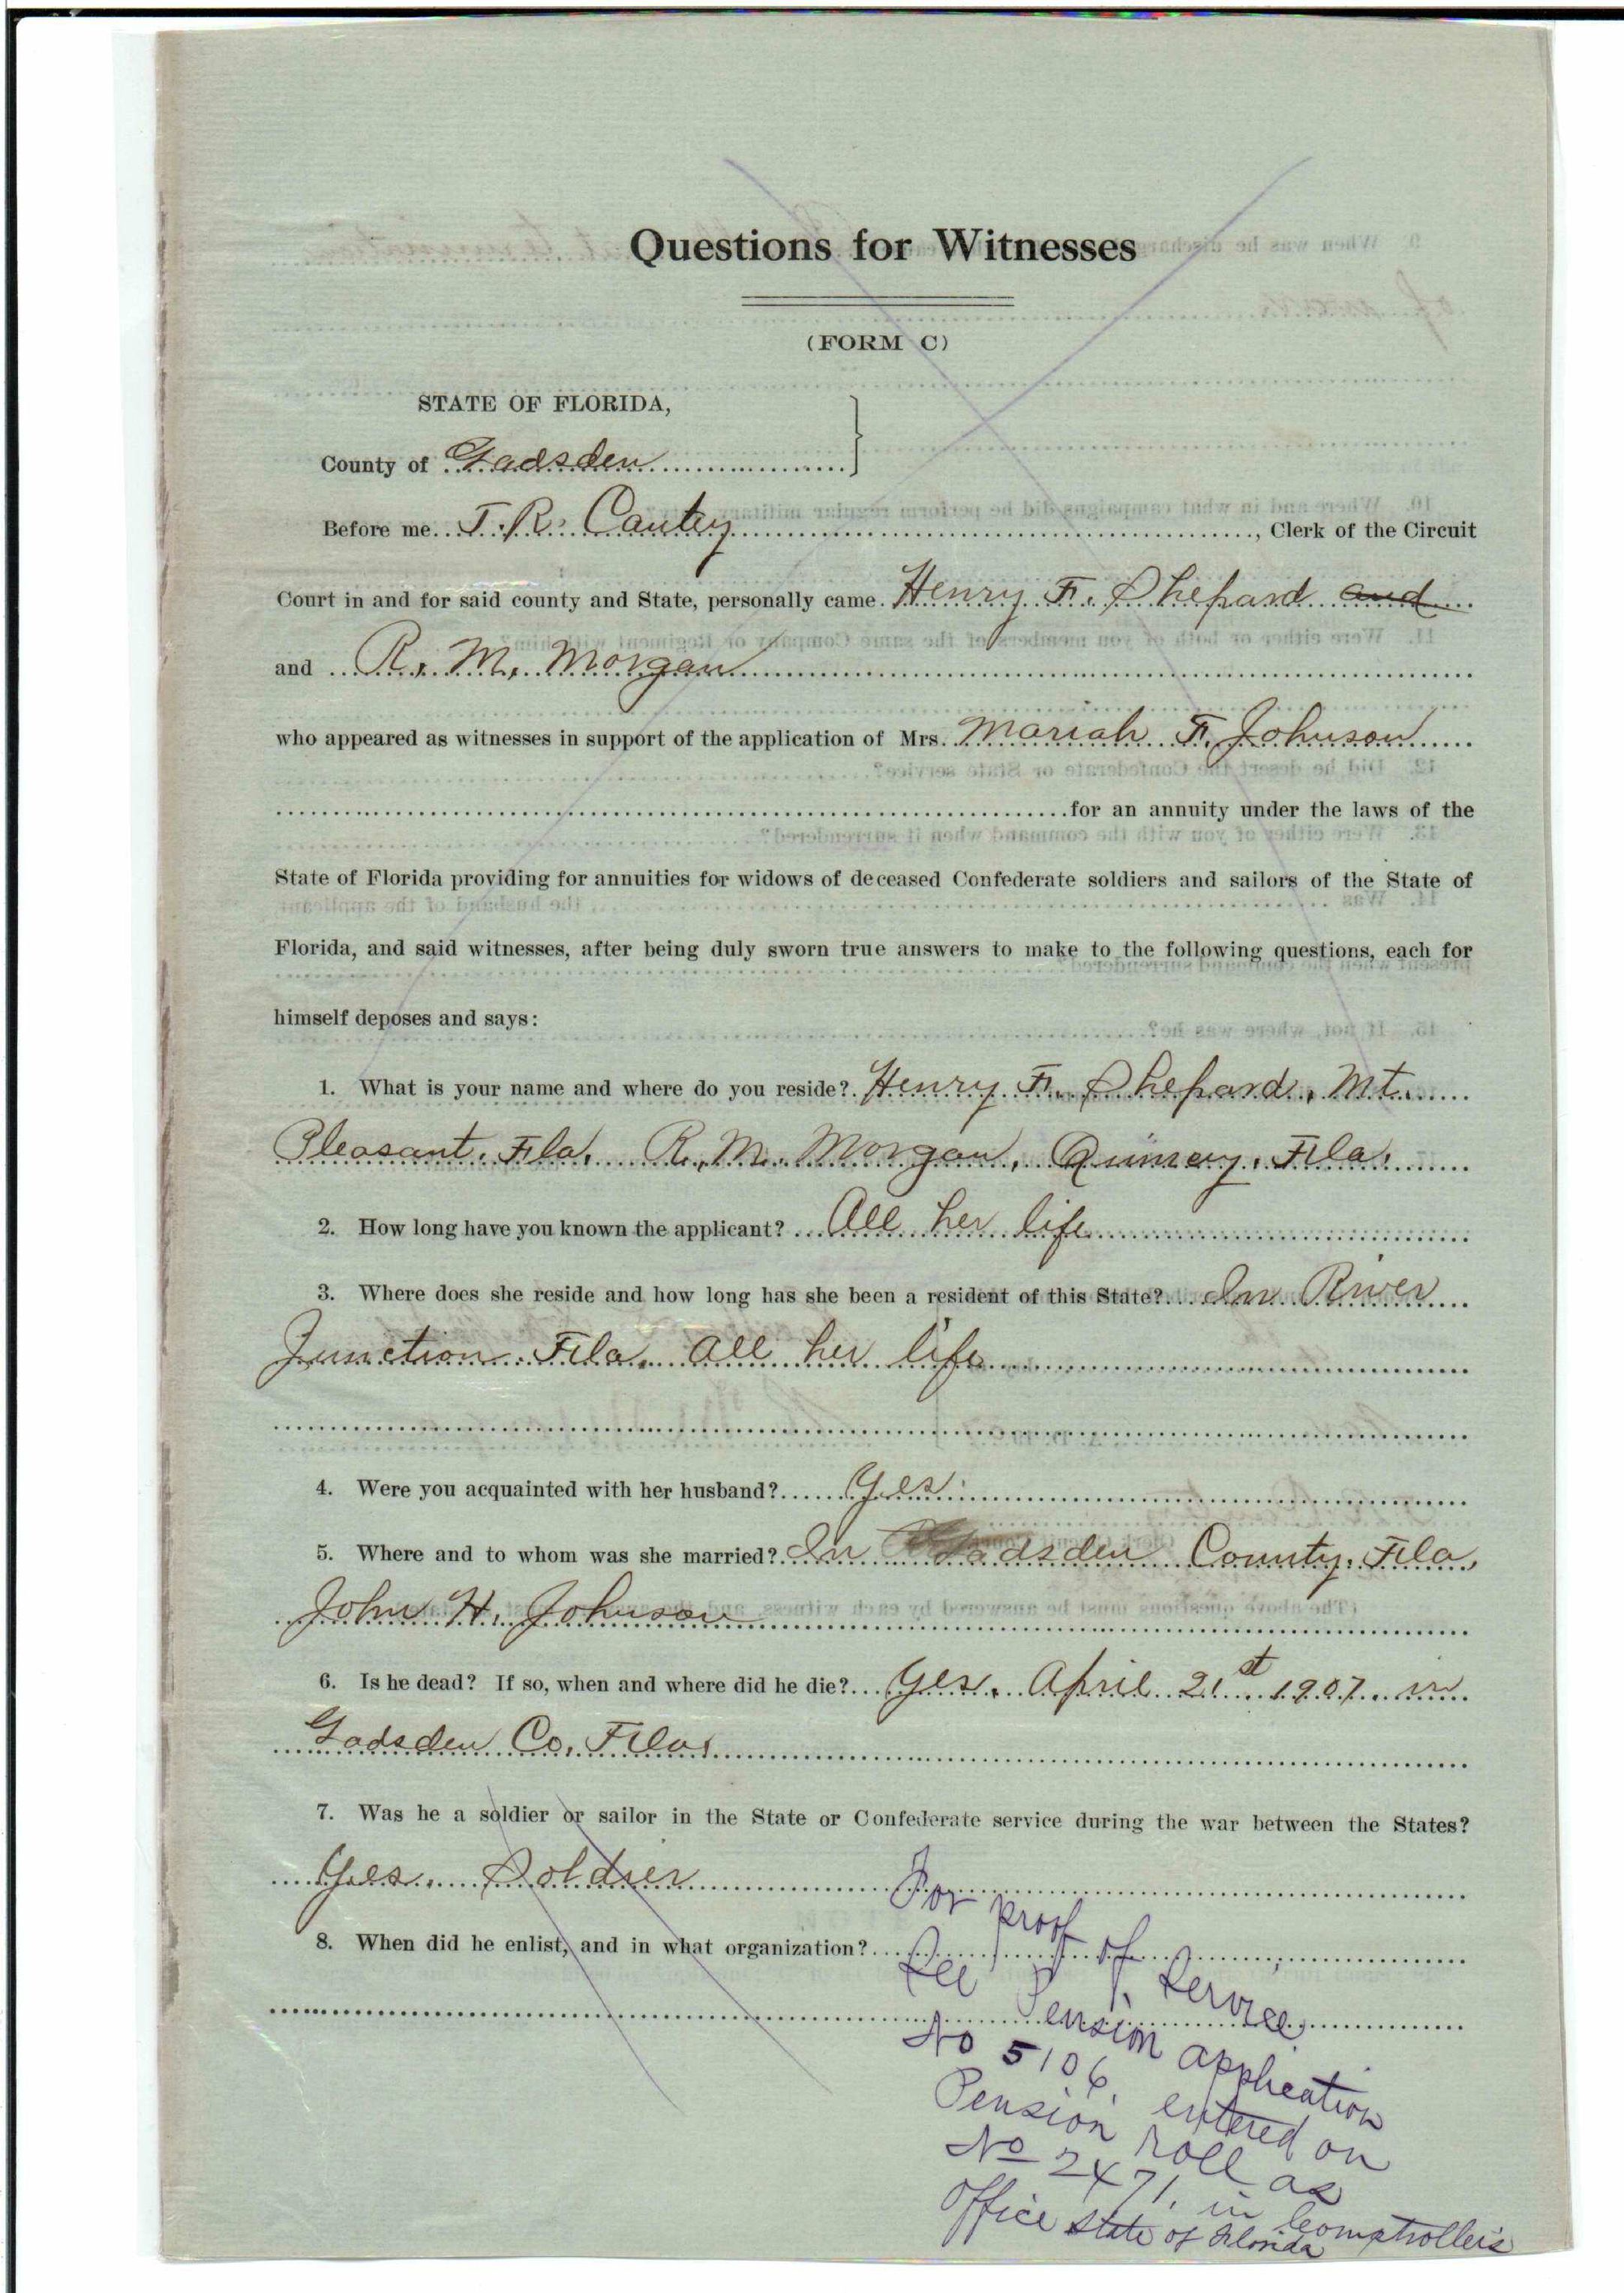 Questions for Witnesses
(FORM C)
STATE OF FLORIDA,
County of Gadsden
Before me T. R. Cantey, Clerk of the Circuit
Court in and for said county and State, personally came Henry F. Shepard and
and R. M. Morgan
who appeared as witnesses in support of the application of Mrs. Mariah F. Johnson
for an annuity under the laws of the
State of Florida providing for annuities for widows of deceased Confederate soldiers and sailors of the State of
Florida, and said witnesses, after being duly sworn true answers to make to the following questions, each for
himself deposes and says:
1. What is your name and where do you reside? Henry F. Shepard, Mt.
Pleasant, Fla. R. M. Morgan, Quincy, Fla.
2. How long have you known the applicant? All her life
3. Where does she reside and how long has she been a resident of this State? In River
Junction Fla. All her life
4. Were you acquainted with her husband? Yes
5. Where and to whom was she married? In Gadsden County, Fla,
John H. Johnson
6. Is he dead? If so, when and where did he die? Yes. April 21st 1907 in
Gadsden Co, Fla.
7. Was he a soldier or sailor in the State or Confederate service during the war between the States?
Yes. Soldier
8. When did he enlist, and in what organization?
For proof of Service
See Pension application
No 5106, entered on
Pension roll as
No 2471, in Comptroller's
Office State of Florida